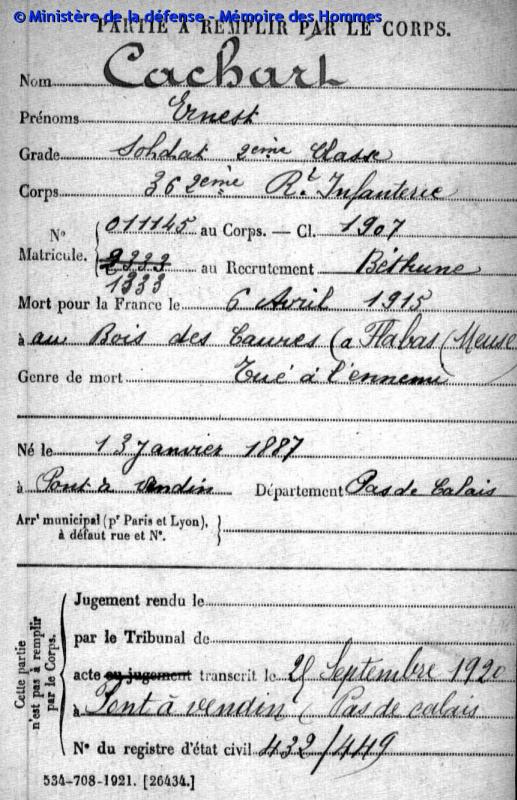 © Ministère de la défense - Mémoire des Hommes
PARTIE À REMPLIR PAR LE CORPS.
Nom Cachart
Prénoms Ernest
Grade Soldat 2eme Classe
Corps 362eme Rt Infanterie
N° 011145 au Corps. — Cl. 1907
Matricule. 2333 au Recrutement Béthune
1333
Mort pour la France le 6 Avril 1915
à au Bois des Caures (a Flabas (Meuse)
Genre de mort Tué à l'ennemi
Né le 13 Janvier 1887
à Pont à Vendin Département Pas de Calais
Arrt municipal (pr Paris et Lyon),
à défaut rue et N°.
Cette partie n'est pas à remplir par le Corps.
Jugement rendu le
par le Tribunal de
acte ou jugement transcrit le 25 Septembre 1920
à Pont à vendin (Pas de calais
N° du registre d'état civil 432/449
534-708-1921. [26434.]